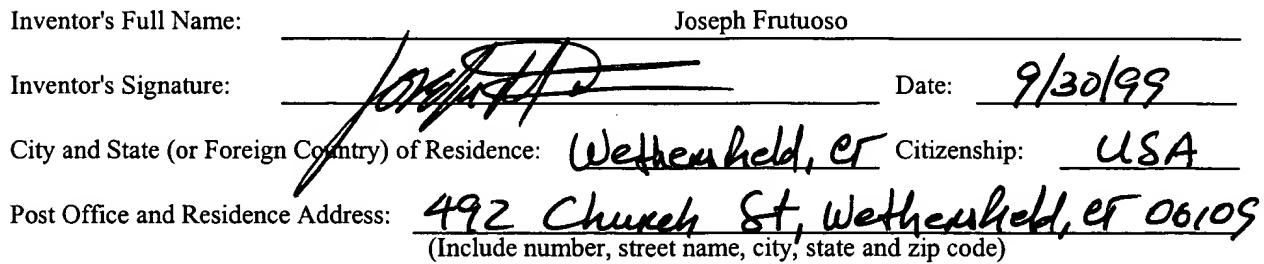 Inventor's Full Name: Joseph Frutuoso
Inventor's Signature: Date: 9/30/99
City and State (or Foreign Country) of Residence: Wethersfield, CT Citizenship: USA
Post Office and Residence Address: 492 Church St, Wethersfield, CT 06109
(Include number, street name, city, state and zip code)